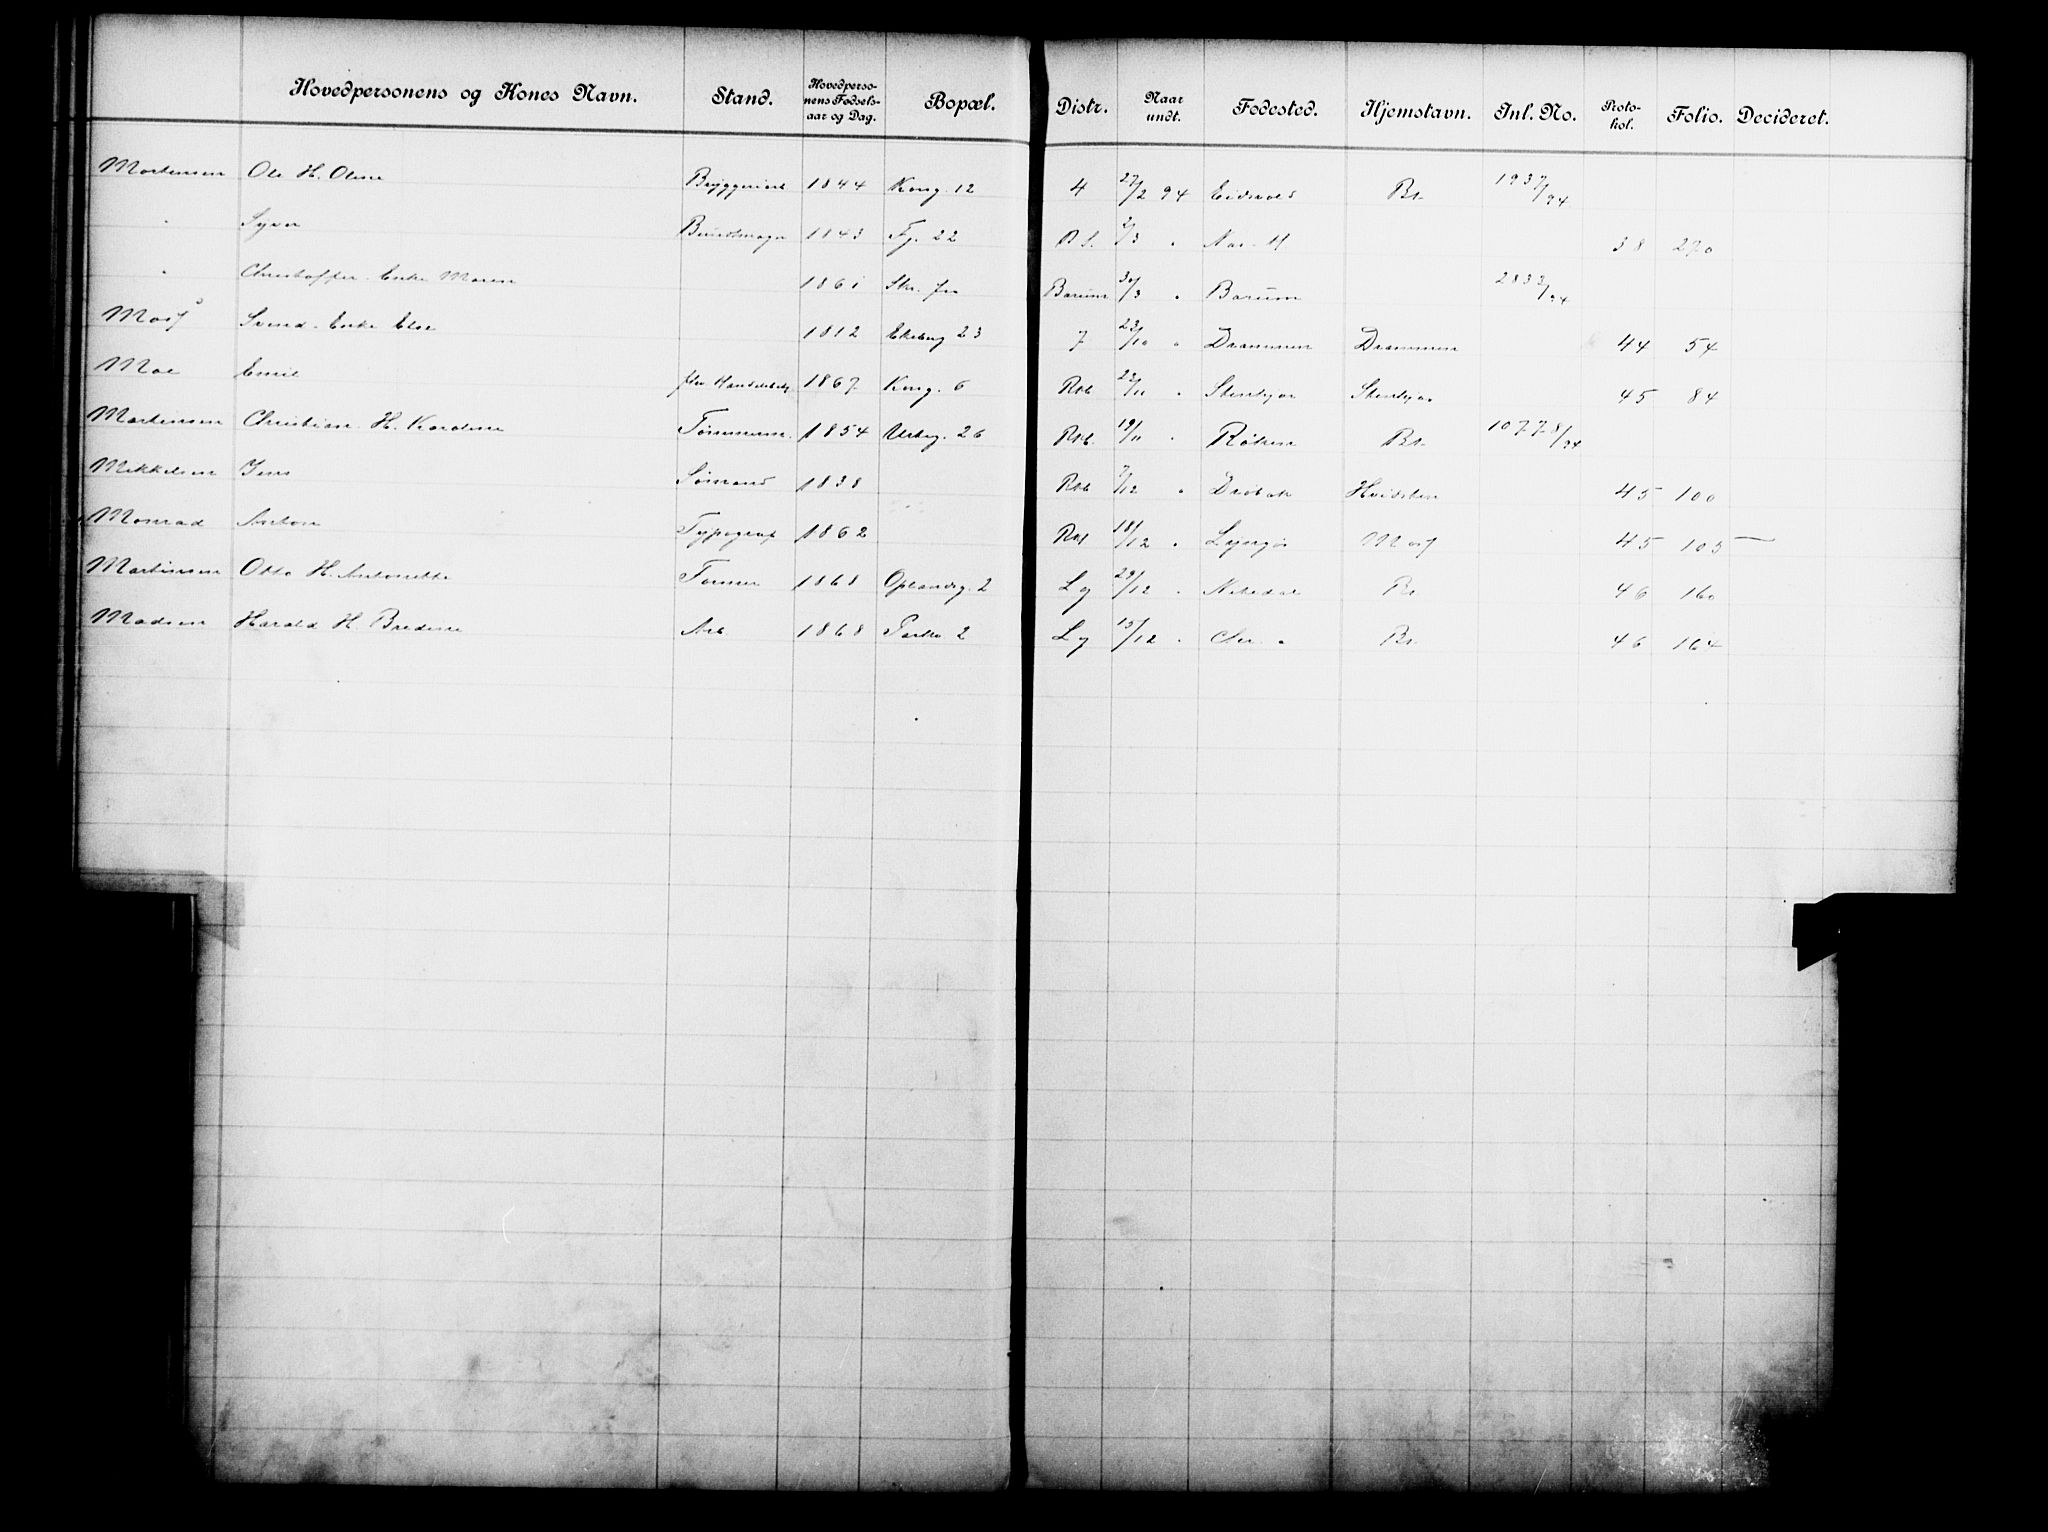 Hovedpersonens og Kones Navn. Stand. Hovedpersonens Fødselsaar og Dag. Bopæl. Distr. Naar undt. Fødested. Hjemstavn. Inl. No. Protokol. Folio. Decideret.
Mortensen Ole H. Oline 1844 Kong. 12 4 27/2 94 Eidsvold Bt. 1937/94
" Syver 1843 Fj. 22 2/3 " 38 270
" Christoffer Enke Maren 1861 Bærum 30/3 " Bærum 2832/94
Moss Svend Enke Else 1812 Ekeberg 23 7 23/10 " Drammen Drammen 44 54
Moe Emil 1867 Kong. 6 Rst 22/11 " Stenkjær Stenkjær 45 84
Martinsen Christian H. Karoline Tømmerm. 1854 Urteg. 26 Rst. 19/11 " Røken Bt. 10778/94
Mikkelsen Jens Sømand 1838 Rst 7/12 " Drøbak Hvidsten 45 100
Monrad Anton Typograf 1862 Rst 18/12 " Lyngør Moss 45 105 —
Martinsen Otto H. Antonette 1868 Oplandsg. 2 Lg 29/12 " Nitedal Bt 46 160
Madsen Harald H. Bredine Arb. 1868 2 Lg 15/12 " Chr. a Bt. 46 164